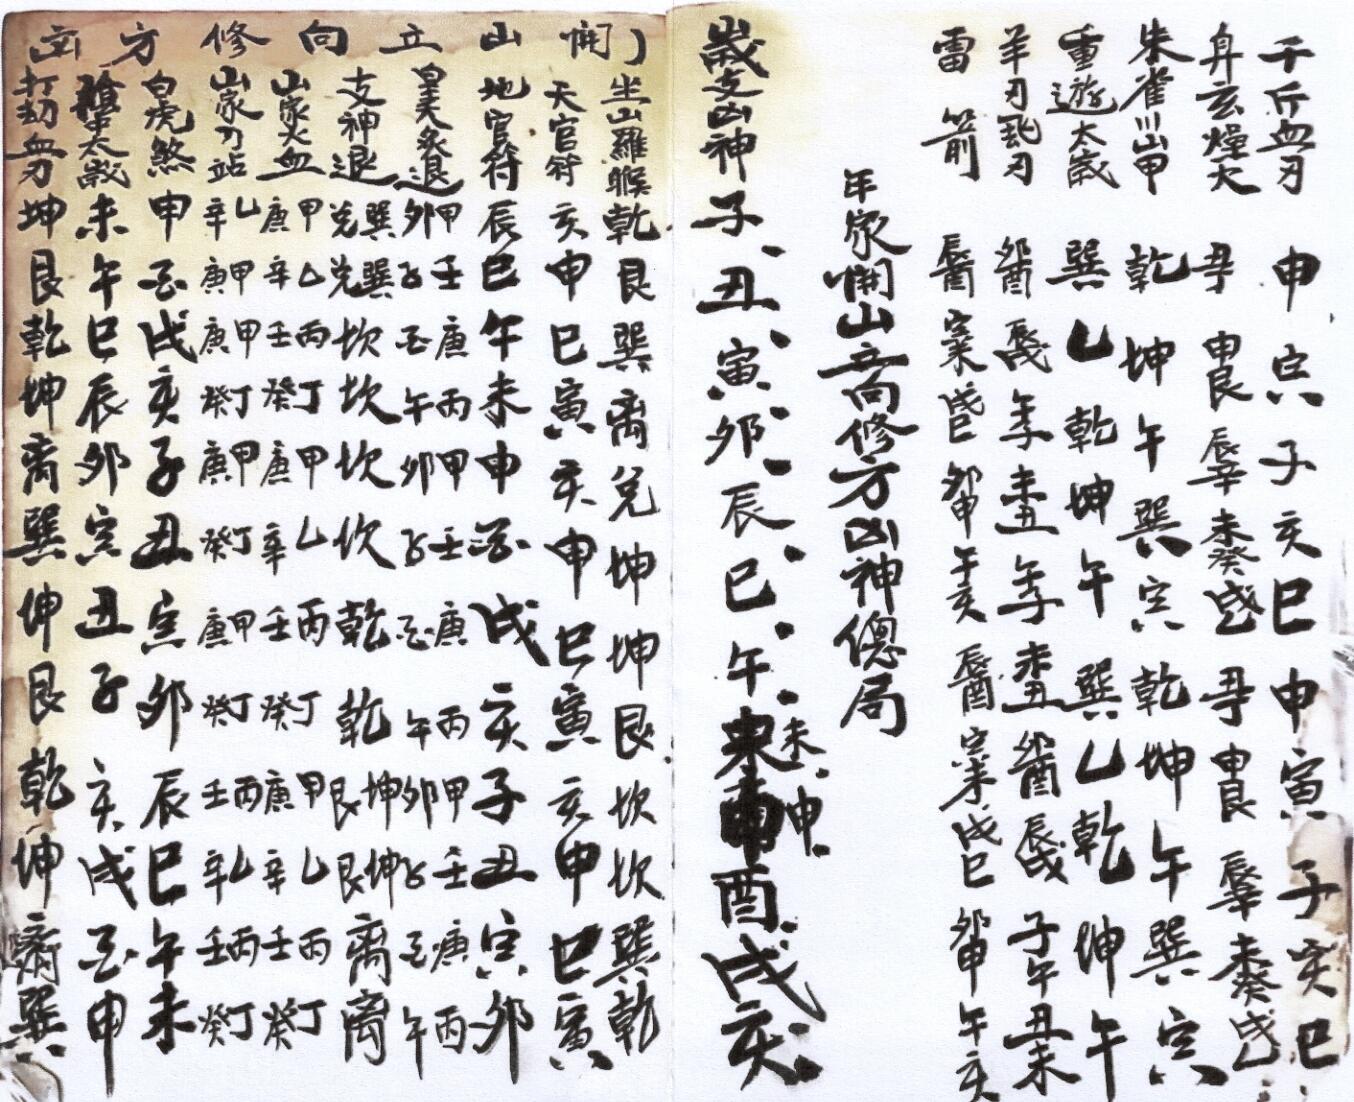 千斤血刃 申 寅 子 亥 巳 申 寅 子 亥 巳
舟玄燥火 申艮 辰辛 未癸 申艮 辰辛 未癸
朱雀川山甲 乾 坤 午 巽 寅 乾 坤 午 巽 寅
重遊太歲 巽 乙 乾 坤 午 巽 乙 乾 坤 午
羊刃飛刃 卯酉 辰戌 午子 未丑 午子 未丑 卯酉 辰戌 子午 丑未
雷箭 辰酉 寅未 戌巳 卯申 午亥 辰酉 寅未 戌巳 卯申 午亥
年家開山立向修方凶神總局
歲支凶神 子、丑、寅、卯、辰、巳、午、未、申、酉、戌、亥、
開山立向修方凶
坐山羅睺 乾 艮 巽 离 兌 坤 坤 艮 坎 坎 巽 乾
天官符 亥 申 巳 寅 亥 申 巳 寅 亥 申 巳 寅
地官符 辰 巳 午 未 申 酉 戌 亥 子 丑 寅 卯
皇天炙退 甲卯 壬子 庚酉 丙午 甲卯 壬子 庚酉 丙午 甲卯 壬子 庚酉 丙午
支神退 巽兌 巽兌 坎 坎 坎 坎 乾 乾 坤艮 坤艮 离 离
山家火血 甲庚 乙辛 丙壬 丁癸 甲庚 乙辛 丙壬 丁癸 甲庚 乙辛 丙壬 丁癸
山家刀砧 乙辛 甲庚 甲庚 丁癸 甲庚 丁癸 甲庚 丁癸 丙壬 乙辛 丙壬 丁癸
白虎煞 申 酉 戌 亥 子 丑 寅 卯 辰 巳 午 未
太歲 未 午 巳 辰 卯 寅 丑 子 亥 戌 酉 申
打劫血刃 坤 艮 乾 坤 离 巽 坤 艮 乾 坤 离 巽